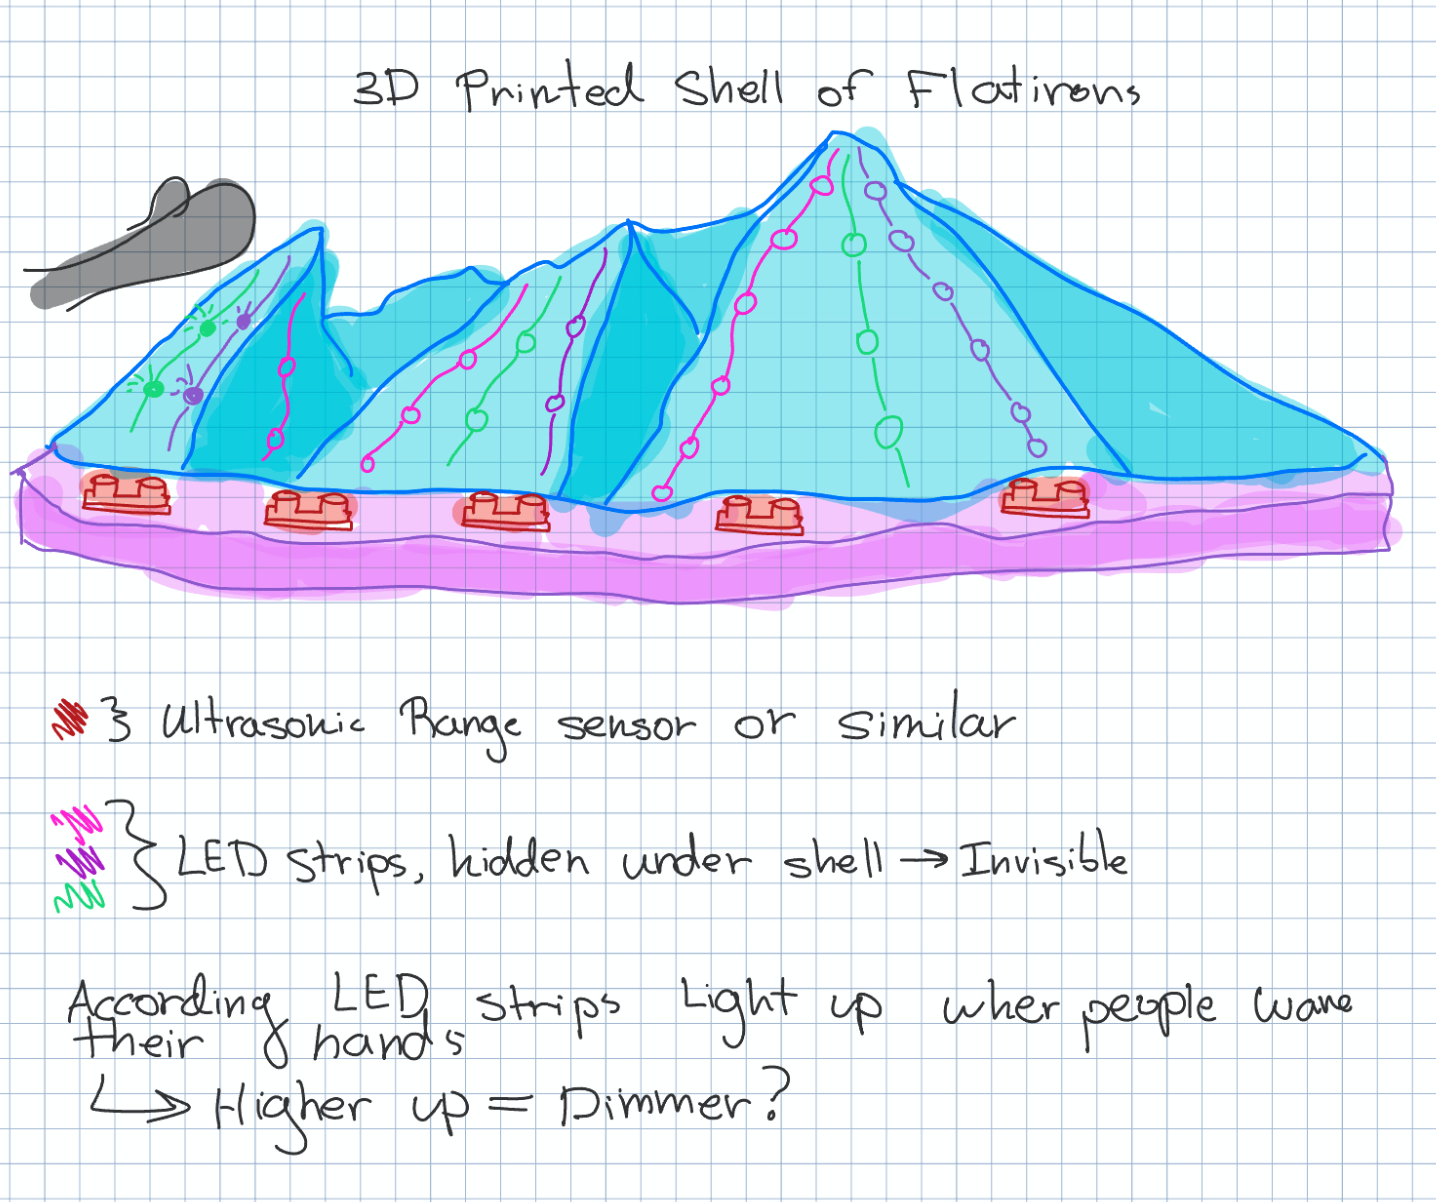 3D Printed Shell of Flatirons
} Ultrasonic Range sensor or similar
} LED strips, hidden under shell → Invisible
According LED strips Light up wher people wave
their hands
↳ Higher up = Dimmer?